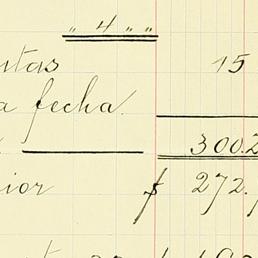 " 4 " "
utas 15
a fecha.
300.2
ior $ 272.